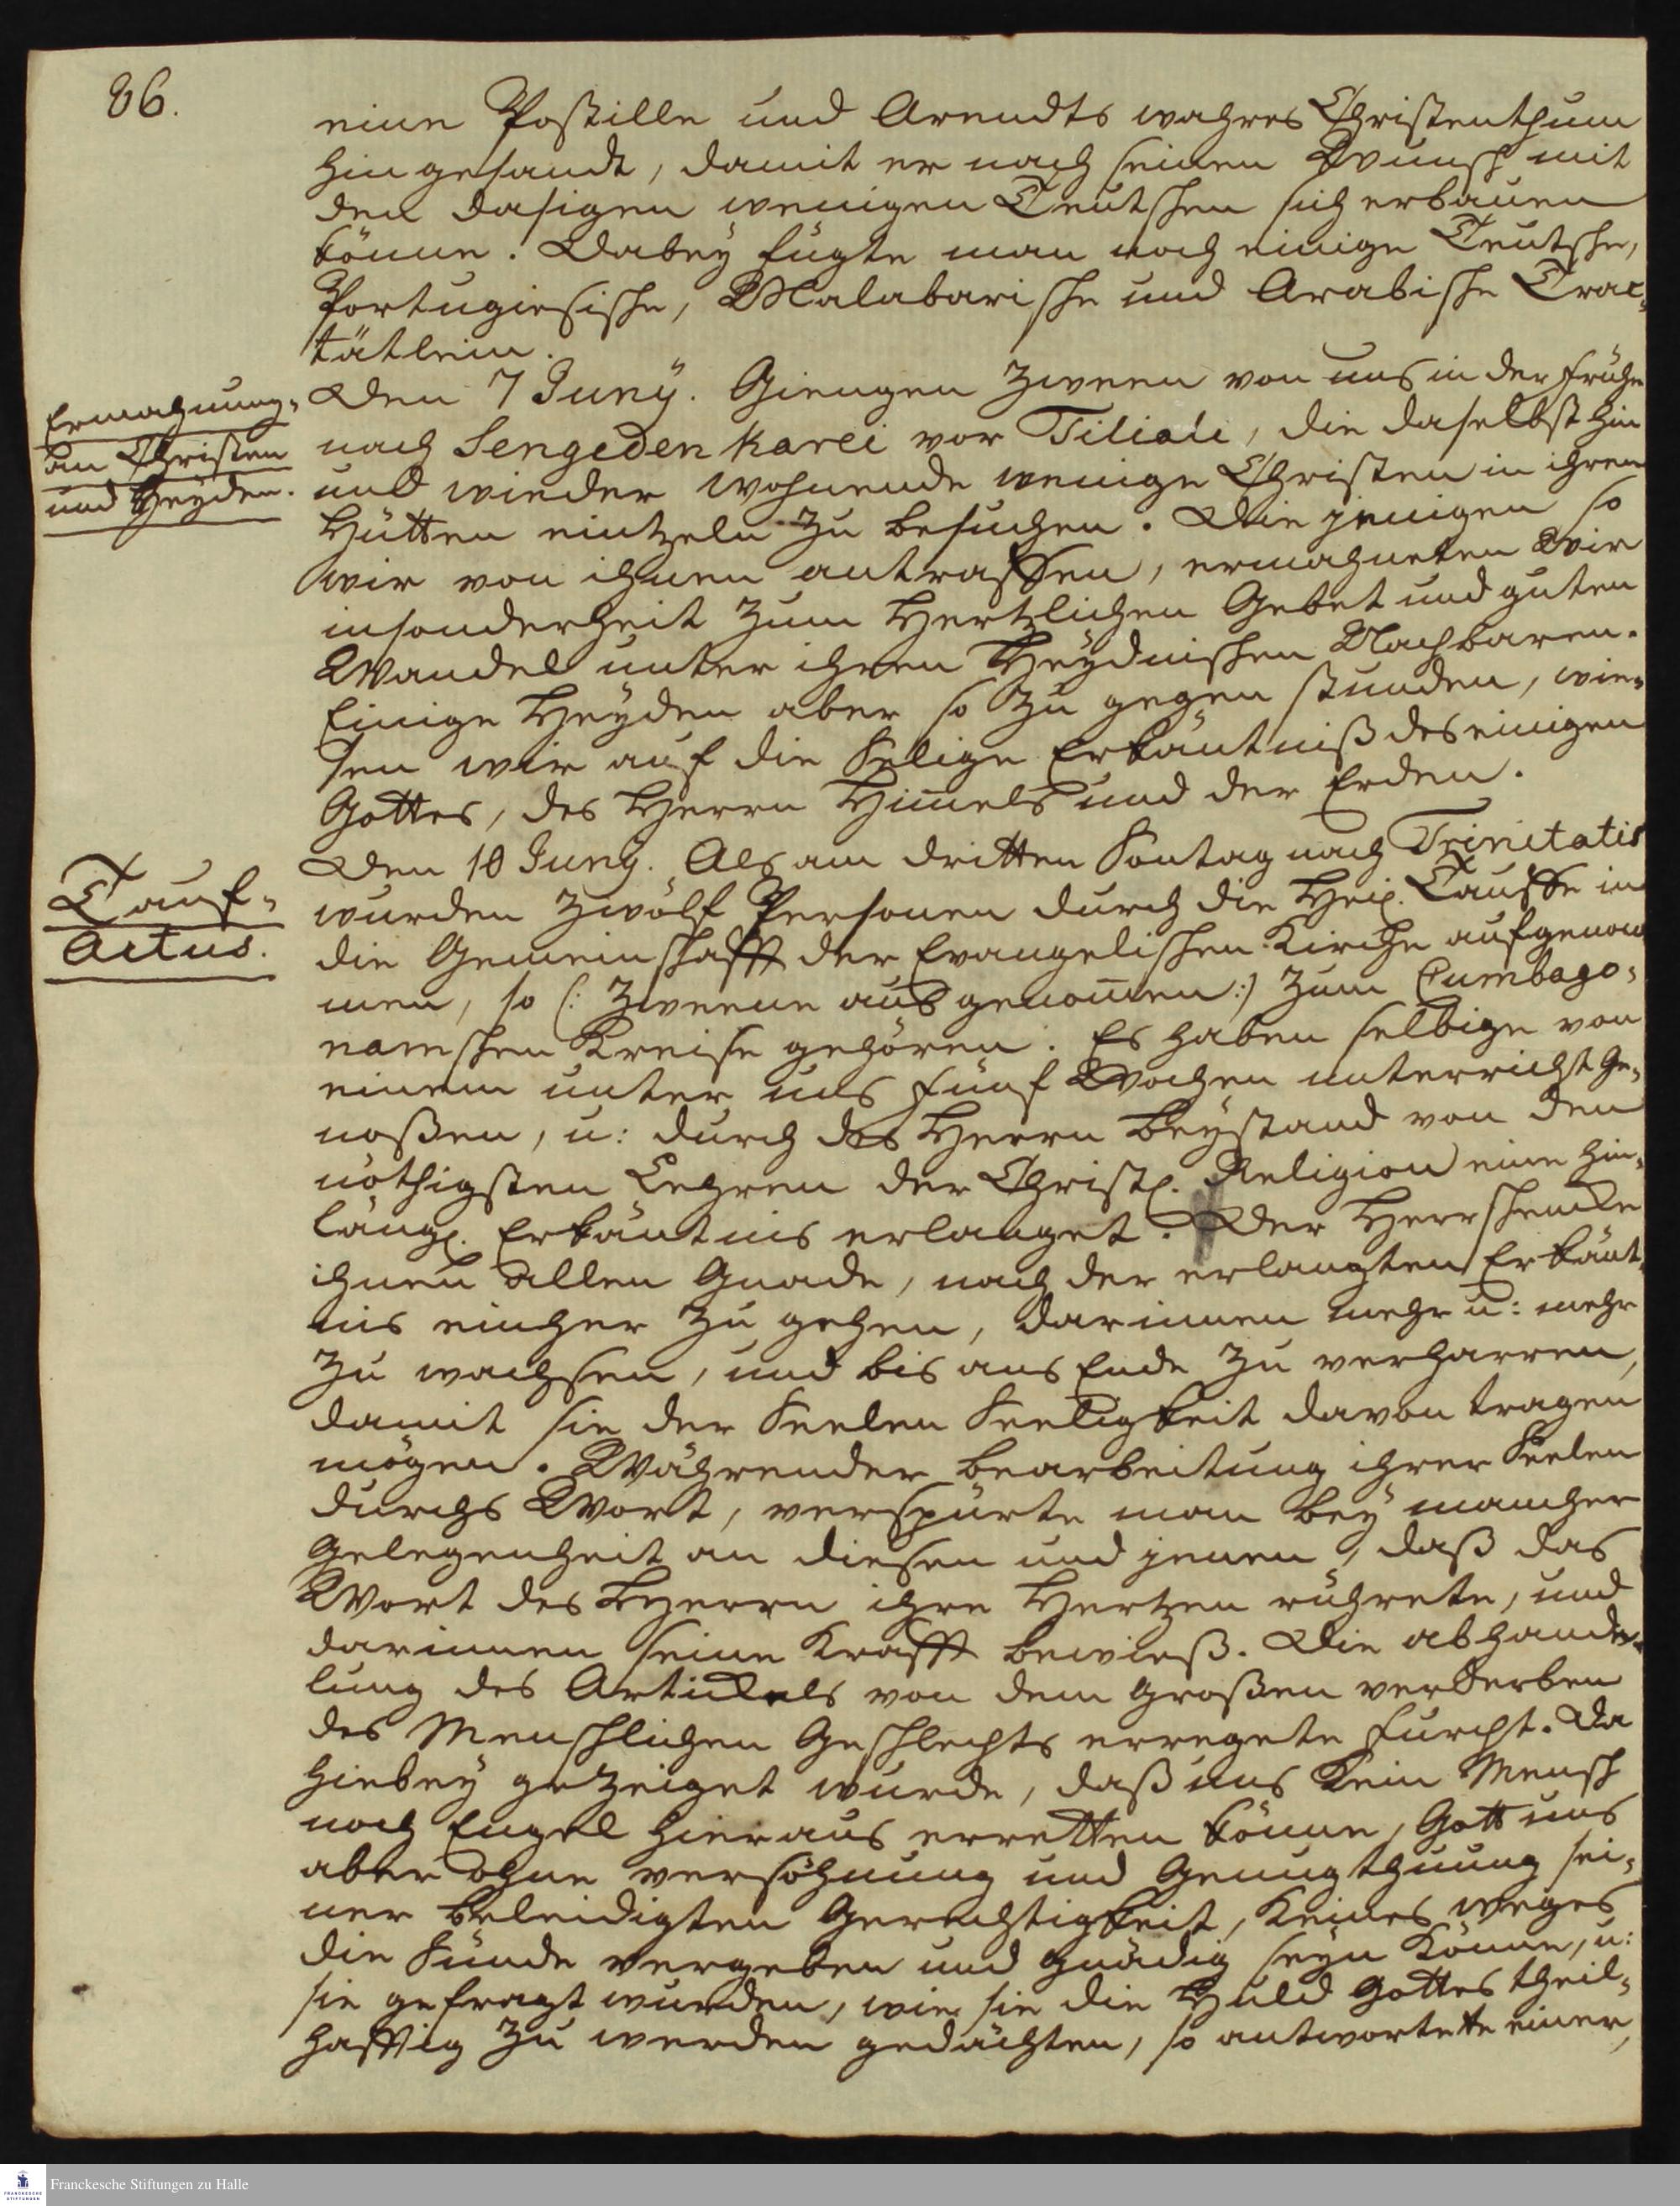 86.
eine Postille und Arendts wahres Christenthum
hin gesandt, damit er nach seinen Wunsch mit
den dasigen wenigen Teutschen sich erbauen
könne. Dabeÿ fügte man noch einige Teutsche,
Portugiesische, Malabarische und Arabische Trac-
tätlein.
Ermahnung-
an Christen
und Heÿden.
Den 7 Junÿ. Giengen zween von uns in der frühe
nach Sengeden karei vor Tiliali, die daselbst hin
und wieder wohnende wenige Christen in ihren
Hütten eintzeln zu besuchen. Die jenigen so
wir von ihnen antraffen, ermahneten wir
insonderheit zum Hertzlichen Gebet und guten
Wandel unter ihren Heÿdnischen Nachbaren.
Einige Heÿden aber so zu gegen stunden, wie-
sen wir auf die Selige Erkäntniß des einigen
Gottes, des Herrn Him̄els und der Erden.
Tauf-
Actus.
Den 10 Junÿ. Als am dritten Sontag nach Trinitatis
wurden zwölf Personen durch die Heil. Tauffe in
die Gemeinschafft der Evangelischen Kirche aufgenom
men, so (: Zweene ausgenom̄en :) zum Cumbago-
namschen Kreise gehören. Es haben selbige von
einem unter uns fünf Wochen unterricht ge-
noßen, u: durch des Herrn Beÿstand von den
nöthigsten Lehren der Christl. Religion eine hin-
längl. Erkäntnis erlanget. Der Herr schencke
ihnen allen Gnade, nach der erlangten Erkänt-
nis einher zu gehen, darinnen mehr u: mehr
zu wachsen, und bis ans Ende zu verharren,
damit sie der Seelen Seeligkeit davon tragen
mögen. Währender bearbeitung ihrer Seelen
durchs Wort, verspürte man beÿ mancher
Gelegenheit an diesen und jenen, daß das
Wort des Herrn ihre Hertzen rührete, und
darinnen seine Krafft bewieß. Die abhand-
lung des Artickels von dem großen verderben
des Menschlichen Geschlechts erregete furcht. Da
hiebeÿ gezeiget wurde, daß uns kein Mensch
noch Engel hieraus erretten könne, Gott uns
aber ohne versöhnung und Genugthuung sei-
ner beleidigten Gerechtigkeit, keines weges
die Sünde vergeben und gnädig seÿn könne, u:
sie gefragt wurden, wie sie die Huld Gottes theil-
hafftig zu werden gedächten, so antwortete einer,
Franckesche Stiftungen zu Halle
FRANCKESCHE
STIFTUNGEN